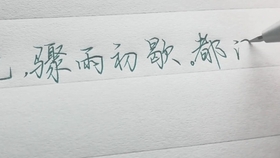 ，骤雨初歇。都